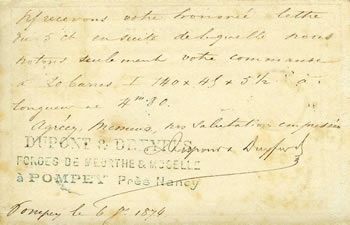 recevons votre honorée lettre
du 5 ct ensuite de laquelle nous
notons seulement votre commande
à 20 barres I 140 x 45 x 5 1/2 à
longueur de 4m 90.
Agréez, Messieurs, nos salutations empressées
Dupont & Dreyfus
DUPONT & DREYFUS
FORGES DE MEURTHE & MOSELLE
à POMPEY Près Nancy
Pompey le 6 1874